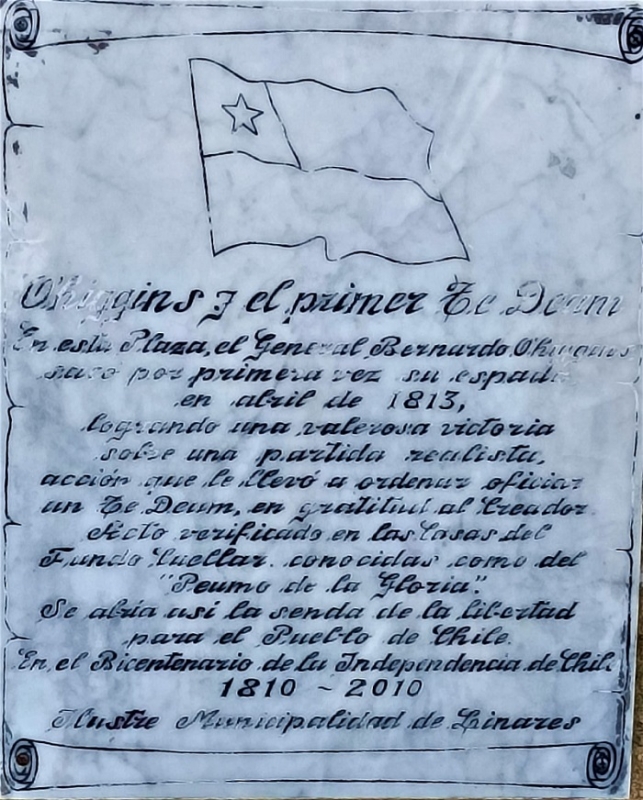 O'higgins y el primer Te Deum
En esta Plaza, el General Bernardo Ohiggins
saco por primera vez su espada
en abril de 1813,
logrando una valerosa victoria
sobre una partida realista,
acción que le llevó a ordenar oficiar
un Te Deum, en gratitud al Creador.
Acto verificado en las Casas del
Fundo Cuellar. conocidas como del
"Peumo de la Gloria".
Se abria asi la senda de la libertad
para el Pueblo de Chile.
En el Bicentenario de la Independencia de Chile
1810 ~ 2010
Ilustre Municipalidad de Linares